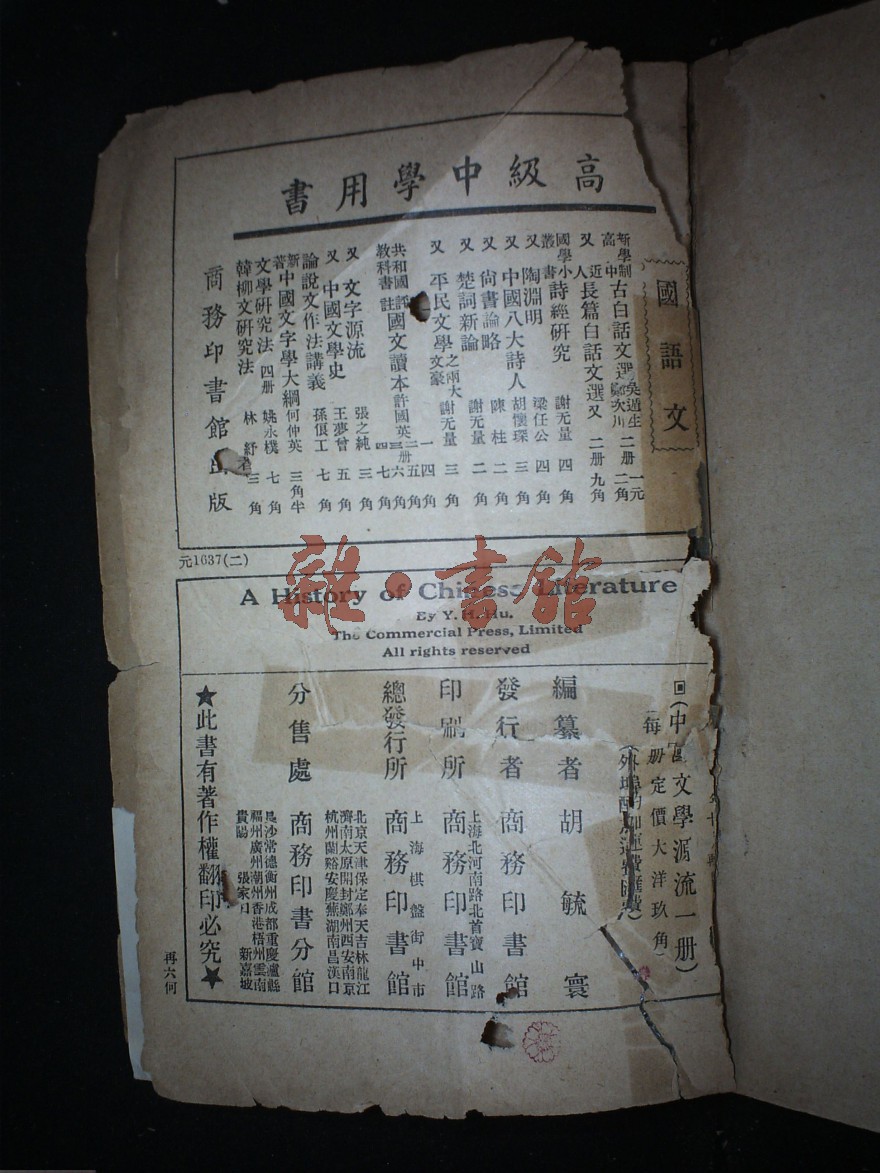 高級中學用書
國語文
新學制高中 古白話文選 吳遁生 鄭次川 二册 一元二角
又 近人長篇白話文選 又 二册 九角
國學小叢書 詩經研究 謝无量 四角
又 陶淵明 梁任公 四角
又 中國八大詩人 胡懷琛 三角
又 尙書論略 陳柱 二角
又 楚詞新論 謝无量 二角
又 平民文學之兩大文豪 謝无量 三角
共和國教科書 評註國文讀本 許國英 一 四角 二 五角 三 六角 四 七角
又 文字源流 張之純 三角
又 中國文學史 王夢曾 五角
論說文作法講義 孫俍工 七角
新著 中國文字學大綱 何仲英 三角半
文學研究法 四册 姚永樸 七角
韓柳文研究法 林紓 三角
商務印書館出版
元1637(二)
A History of Chinese Literature
By Y. H. Hu.
The Commercial Press, Limited
All rights reserved
(中國文學源流一册)
(每册定價大洋玖角)
(外埠酌加運費匯費)
編纂者 胡毓寰
發行者 商務印書館
印刷所 上海北河南路北首寶山路 商務印書館
總發行所 上海棋盤街中市 商務印書館
分售處 商務印書分館
北京天津保定奉天吉林龍江
濟南太原開封鄭州西安南京
杭州蘭谿安慶蕪湖南昌漢口
長沙常德衡州成都重慶瀘縣
福州廣州潮州香港梧州雲南
貴陽 張家口 新嘉坡
★此書有著作權翻印必究★
再六何
雜·書館